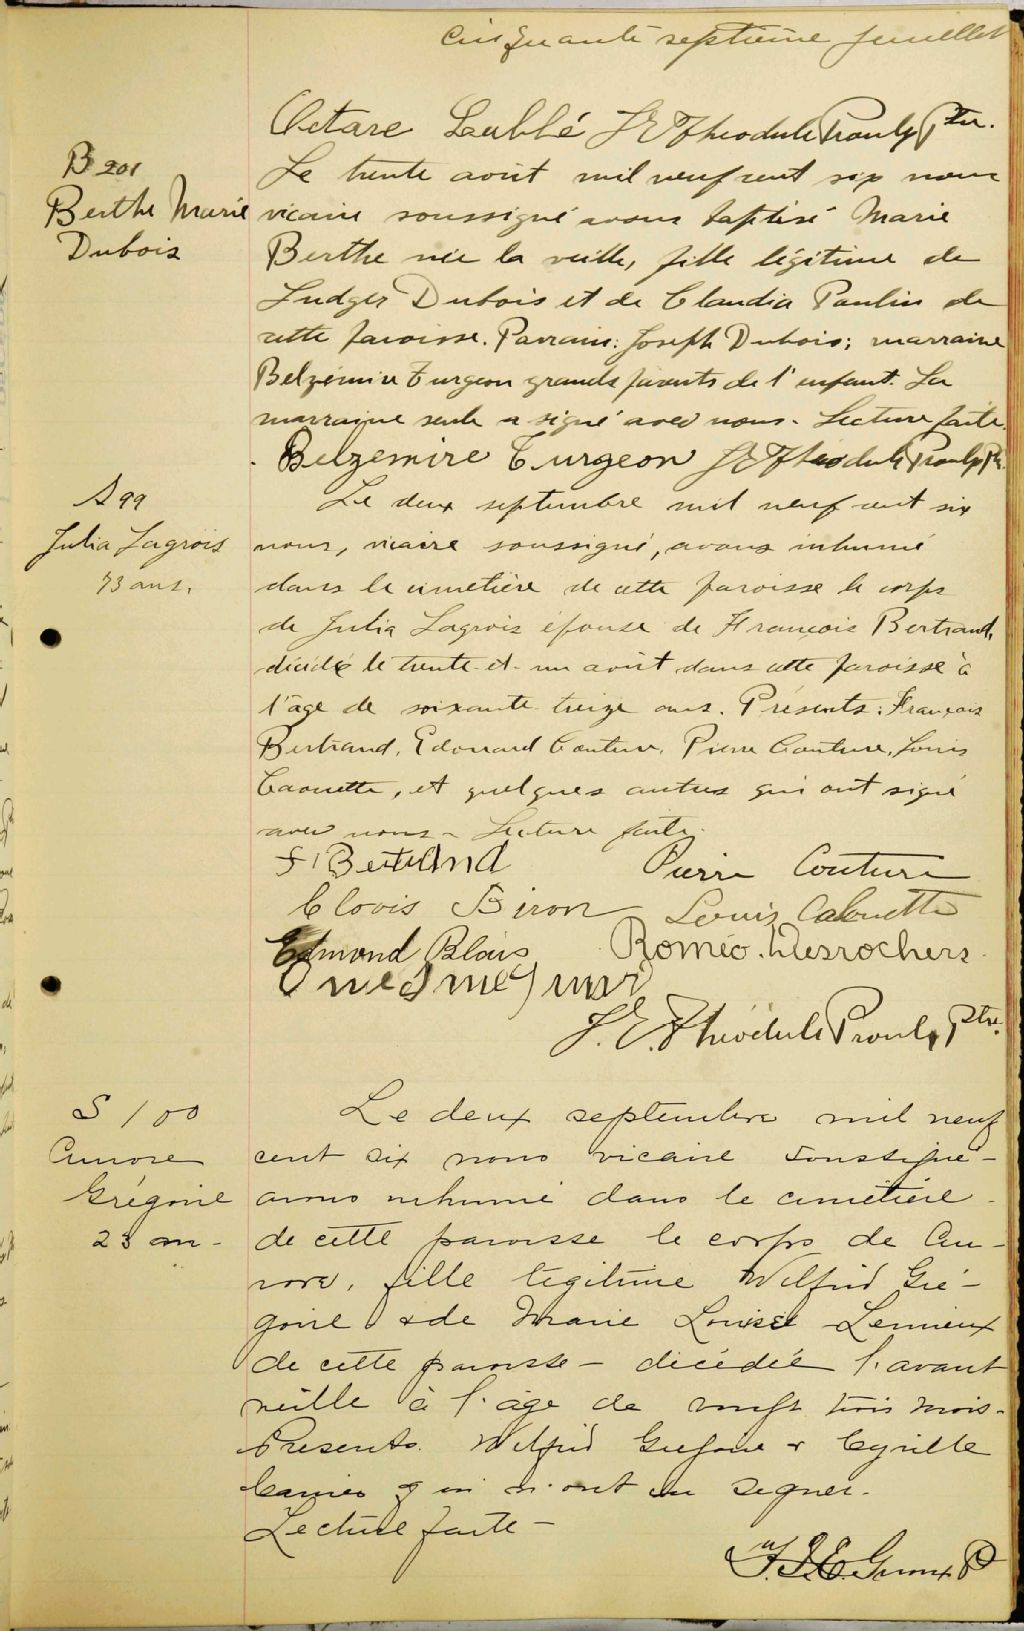 cinquante septième feuillet
Octave Labbé J E Théodule Proulx Ptre.
B 201
Berthe Marie
Dubois
Le trente août mil neuf cent six nous
vicaire soussigné avons baptisé Marie
Berthe née la veille, fille légitime de
Ludger Dubois et de Claudia Paulin de
cette paroisse. Parrain: Joseph Dubois; marraine
Belzémire Turgeon grands parents de l'enfant. La
marraine seule a signé avec nous. Lecture faite.
Belzemire Turgeon J E Théodule Proulx Ptr.
S 99
Julia Lagrois
73 ans.
Le deux septembre mil neuf cent six
nous, vicaire soussigné, avons inhumé
dans le cimetière de cette paroisse le corps
de Julia Lagrois épouse de François Bertrand,
décédé le trente et un août dans cette paroisse à
l'âge de soixante treize ans. Présents: François
Bertrand, Edouard Couture, Pierre Couture, Louis
Caouette, et quelques autres qui ont signé
avec nous - Lecture faite.
F Bertrand Pierre Couture
Clovis Biron Louis Caouette
Edmond Blais Roméo. Desrochers
J. E. Théodule Proulx, Ptre.
S 100
Aurore
Grégoire
23 m -
Le deux septembre mil neuf
cent six nous vicaire soussigné -
avons inhumé dans le cimetière -
de cette paroisse le corps de Au -
rore, fille légitime Wilfrid Gré -
goire & de Marie Louise Lemieux
de cette paroisse - décédée l'avant
veille à l'âge de vingt trois mois -
Presents. Wilfrid Gregoire & Cyrille
Carrier qui n'ont su signer.
Lecture faite -